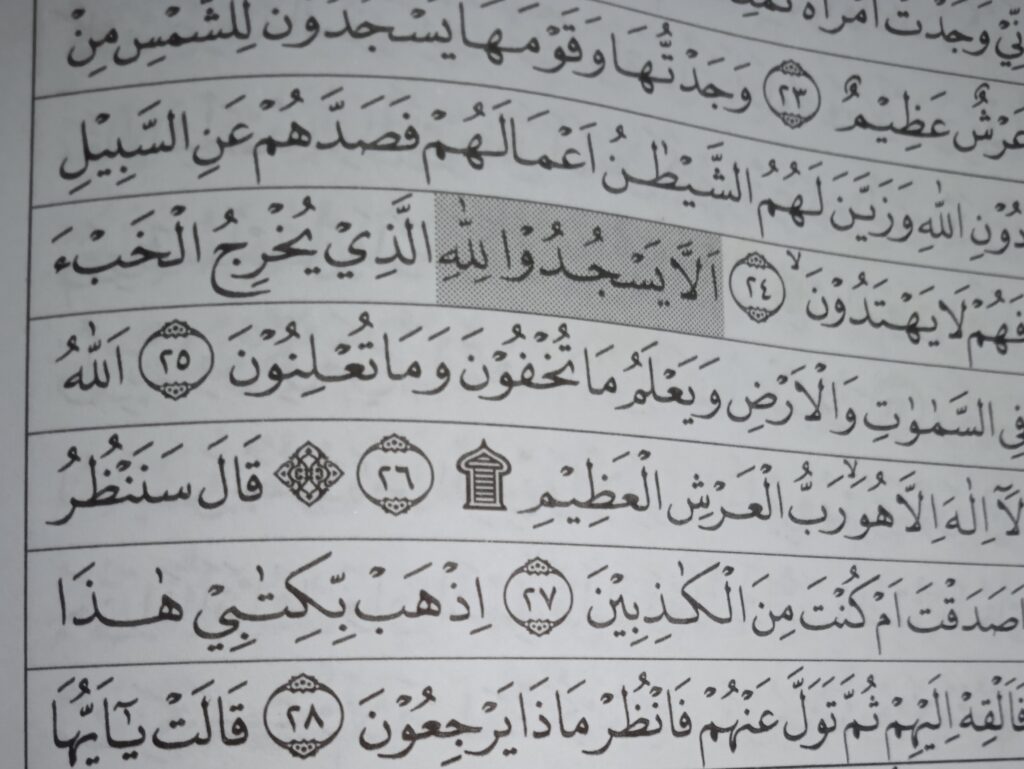 اِنِّيْ وَجَدْتُّ امْرَاَةً
عَرْشٌ عَظِيْمٌ ٢٣ وَجَدْتُّهَا وَقَوْمَهَا يَسْجُدُوْنَ لِلشَّمْسِ مِنْ
دُوْنِ اللّٰهِ وَزَيَّنَ لَهُمُ الشَّيْطٰنُ اَعْمَالَهُمْ فَصَدَّهُمْ عَنِ السَّبِيْلِ
فَهُمْ لَا يَهْتَدُوْنَۙ ٢٤ اَلَّا يَسْجُدُوْا لِلّٰهِ الَّذِيْ يُخْرِجُ الْخَبْءَ
فِى السَّمٰوٰتِ وَالْاَرْضِ وَيَعْلَمُ مَا تُخْفُوْنَ وَمَا تُعْلِنُوْنَ ٢٥ اَللّٰهُ
لَآ اِلٰهَ اِلَّا هُوَۙ رَبُّ الْعَرْشِ الْعَظِيْمِ ۩ ٢٦ ۞ قَالَ سَنَنْظُرُ
اَصَدَقْتَ اَمْ كُنْتَ مِنَ الْكٰذِبِيْنَ ٢٧ اِذْهَبْ بِّكِتٰبِيْ هٰذَا
فَاَلْقِهْ اِلَيْهِمْ ثُمَّ تَوَلَّ عَنْهُمْ فَانْظُرْ مَاذَا يَرْجِعُوْنَ ٢٨ قَالَتْ يٰٓاَيُّهَا